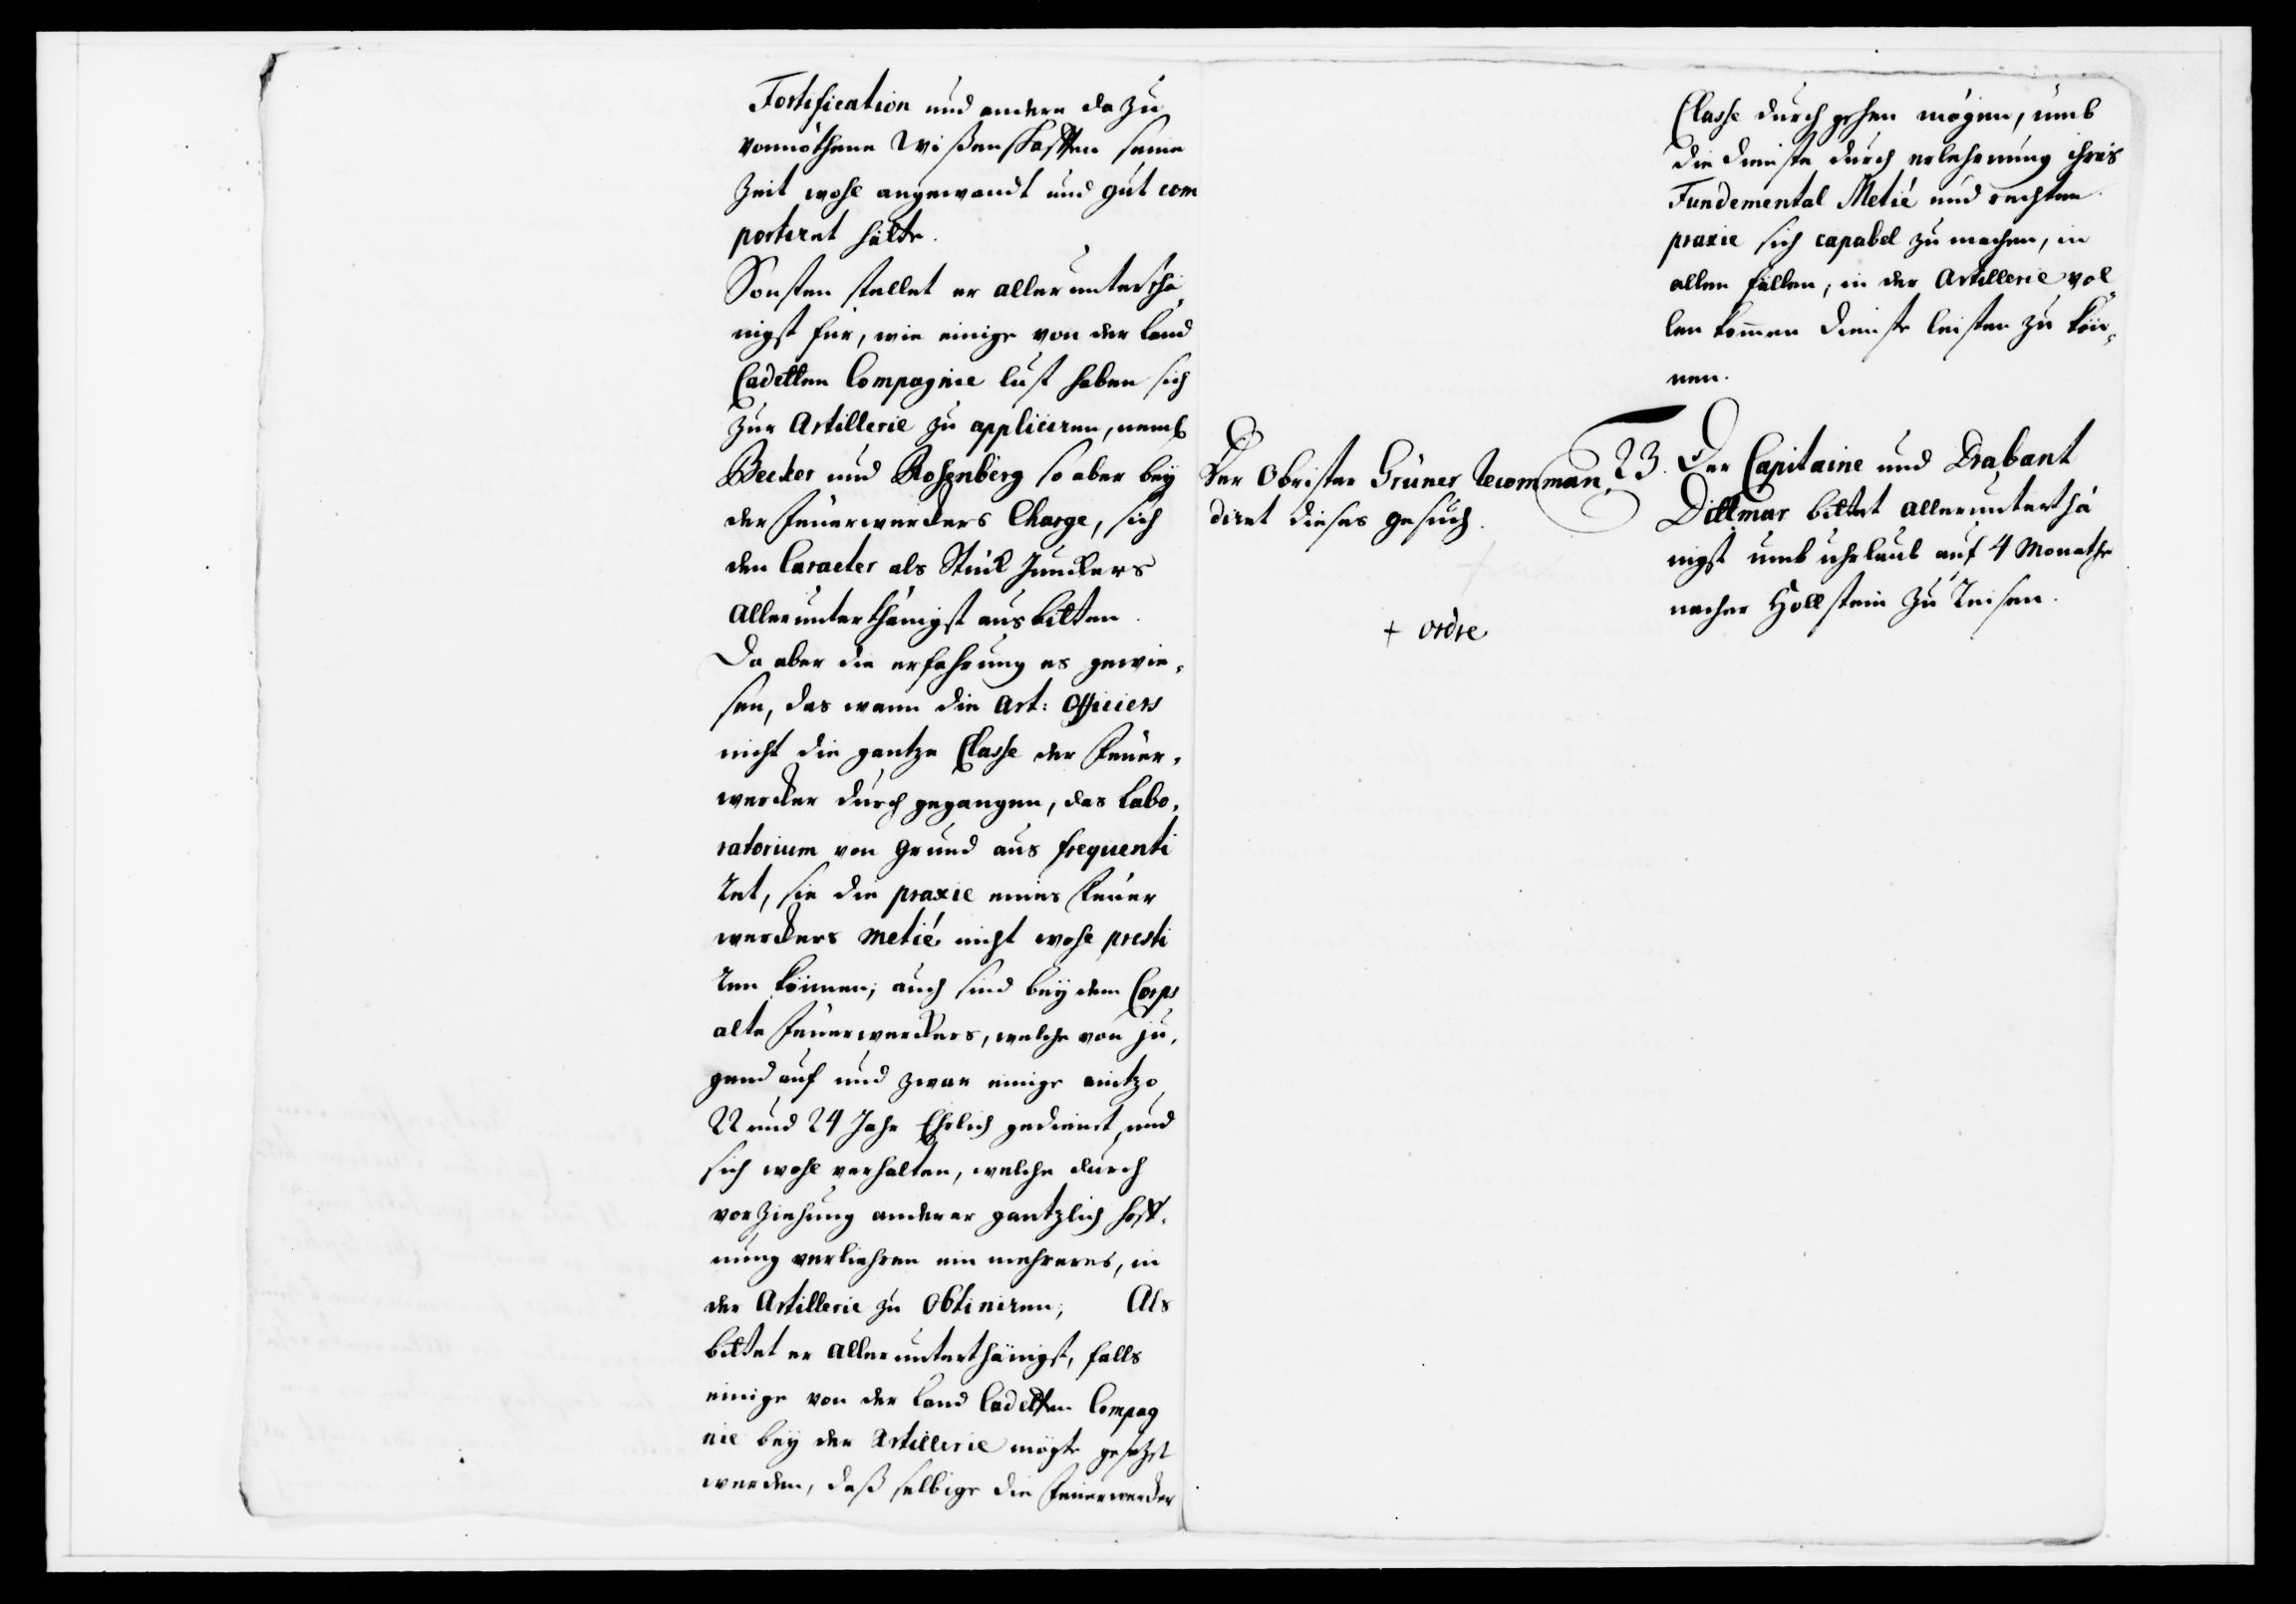 Fortification und andere dazu
vonnöthene Wißenschafften seine
Zeit wohl angewandt und gut com
portiret hätte.
Sonsten stellet er allerunterthä
nigst für, wie einige von der Land
Cadetten Compagnie lust haben sich
zur Artillerie zu appliciren, neml.
Becker und Rosenberg so aber bey
der Feuerwerckers Charge, sich
den Caracter als Stück Junckers
allerunterthänigst ausbitten.
Da aber die erfahrung es gewie-
sen, das wann die Art: Officiers
nicht die gantze Classe der Feuer-
wercker durchgegangen, das Labo-
ratorium von Grund aus frequenti
ret, sie die praxie eines Feuer
werckers Metié nicht wohl presti
ren können; auch sind bey dem Corps
alte Feuerwerckers, welche von ju-
gend auf und zwar einige anitzo
22 und 24 Jahr Ehrlich gedienet und
sich wohl verhalten, welche durch
vorziehung anderer gantzlich hoff-
nung verliehren ein mehreres, in
der Artillerie zu obtiniren; Als
bittet er allerunterthänigst, falls
einige von der Land Cadetten Compag
nie bey der Artillerie mögte gesetzt
werden, daß selbige die Feuerwercker
Classe durchgehen mögen, umb
die dienste durch erlehrnung ihres
Fundemental Metié und rechten
praxie sich capabel zu machen, in
allen fällen, in der Artillerie vol-
lenkommen dienste leisten zu kön-
nen.
23. Der Capitaine und Drabant
Dittmar bittet allerunterthä
nigst umb uhrlaub auf 4 Monathe
nacher Hollstein zu reisen.
Der Obrister Grüner recomman-
diret dieses gesuch.
+ ordre